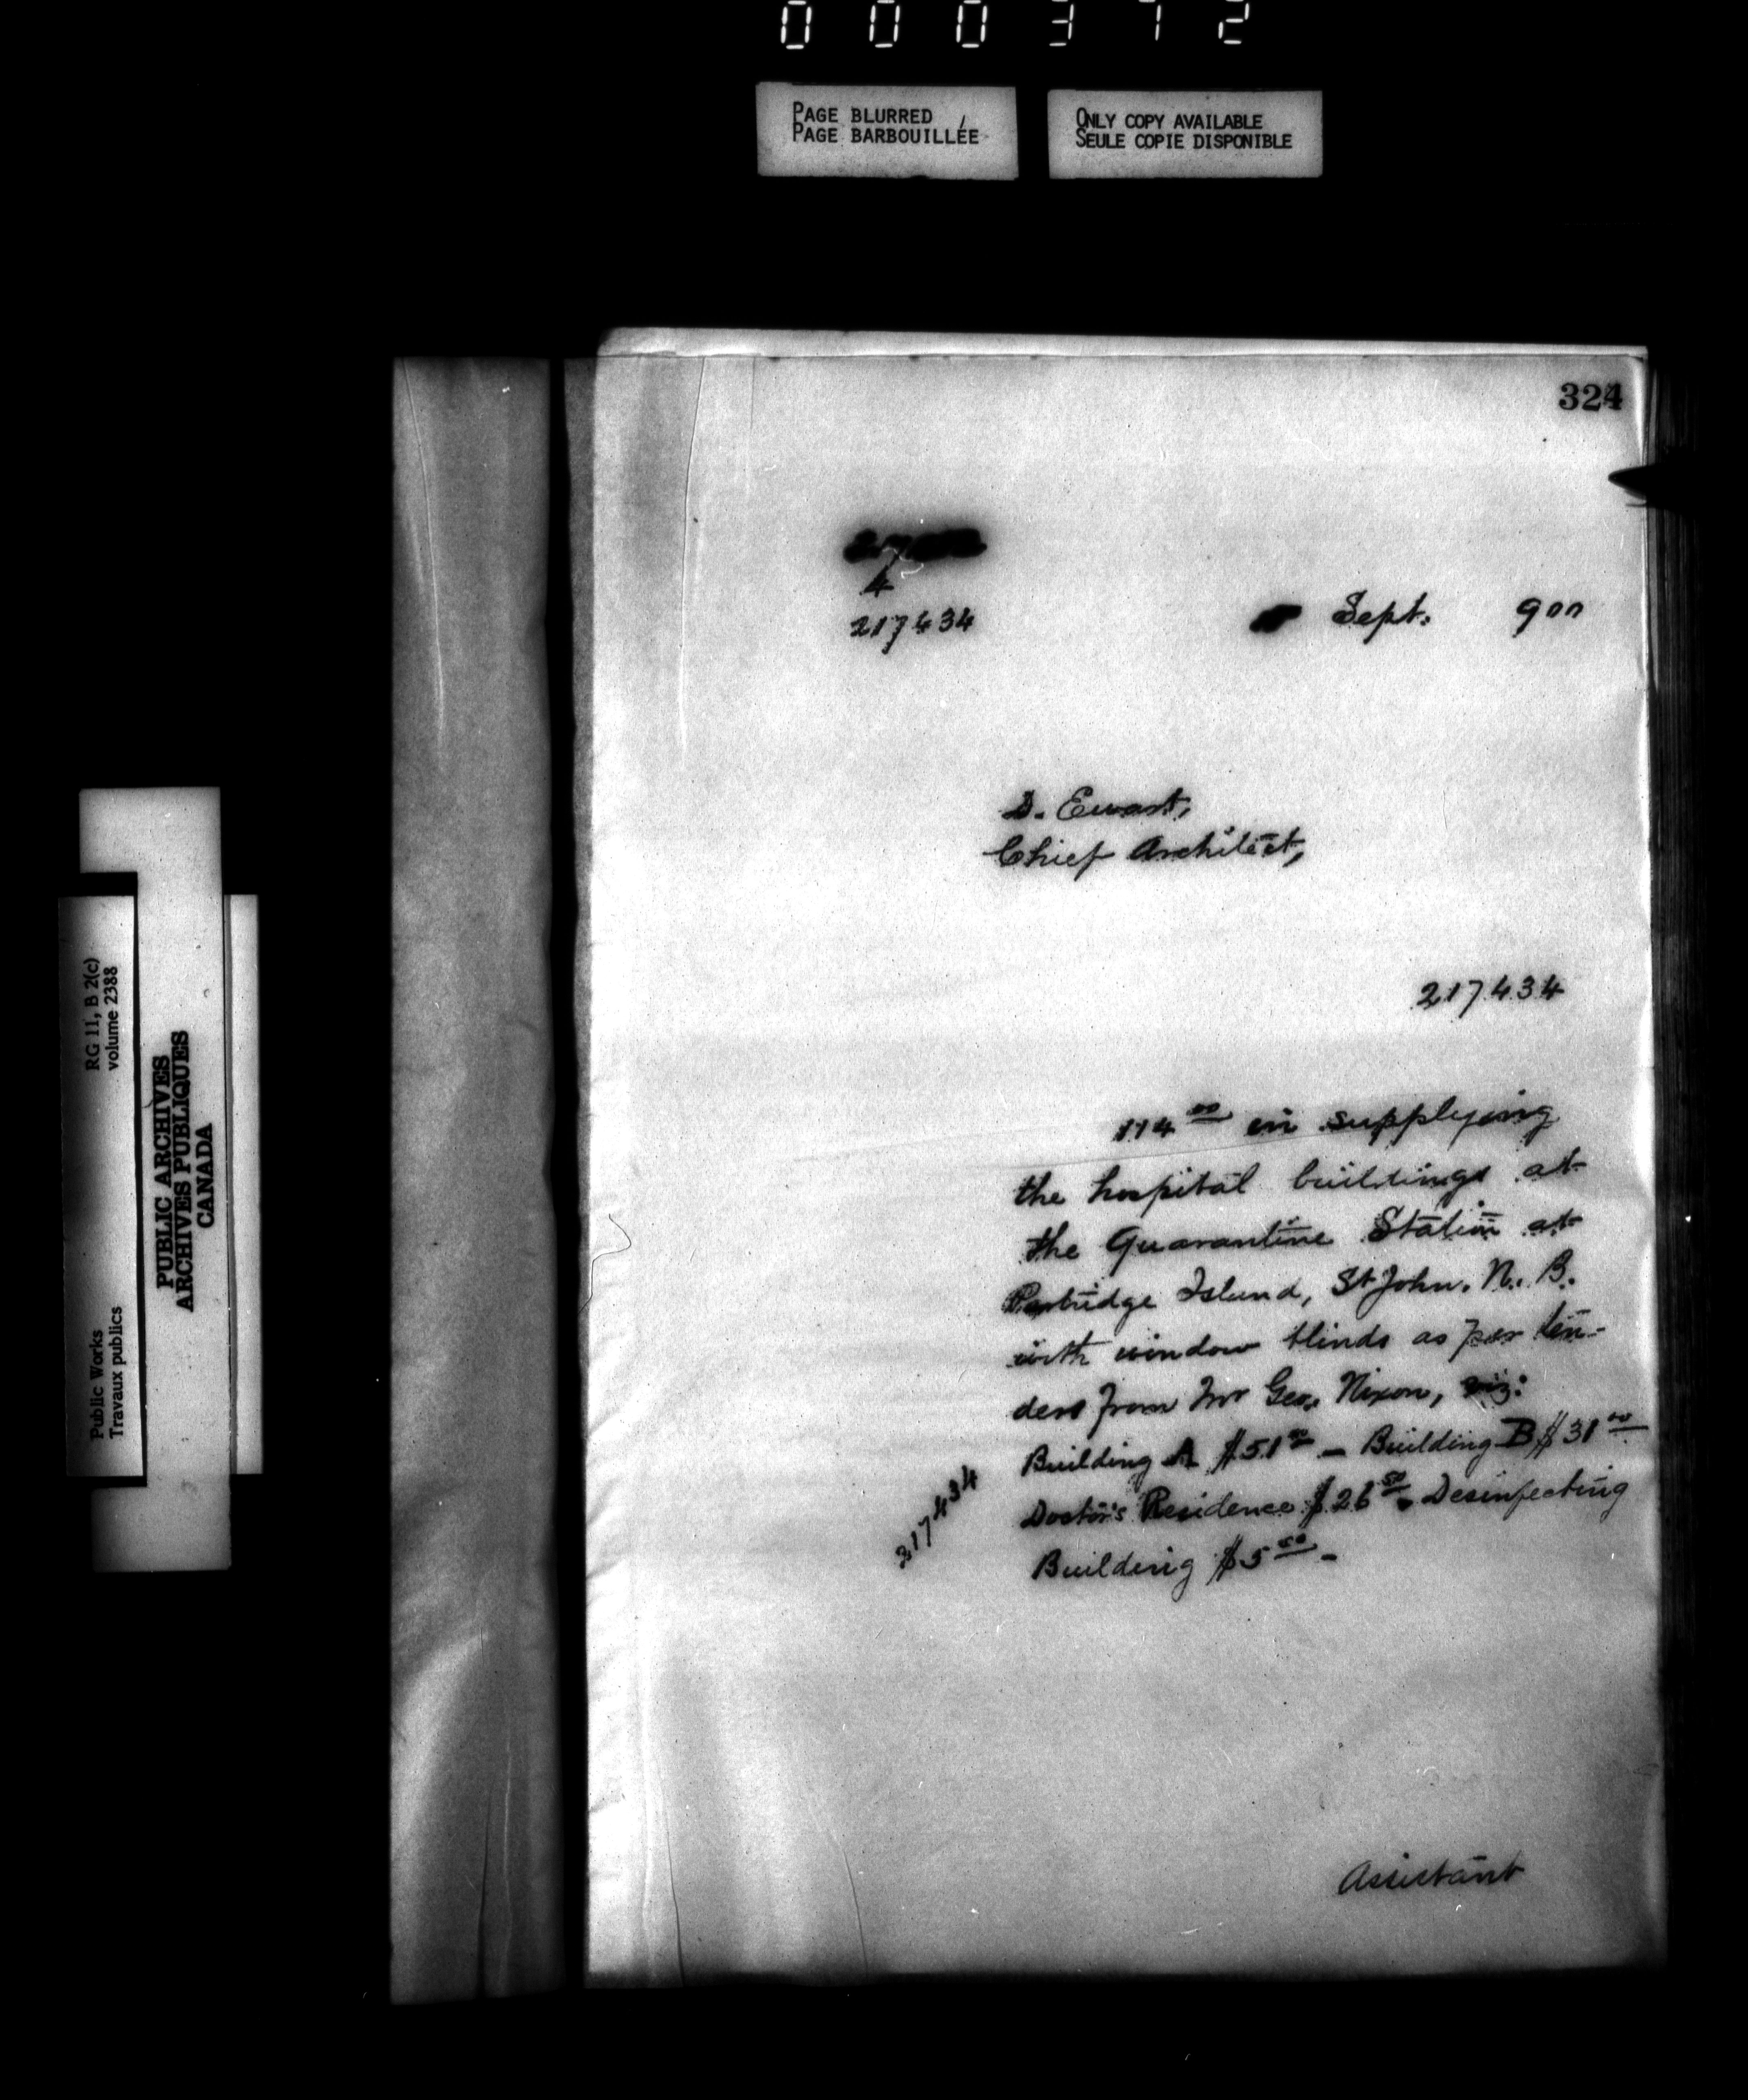 000372
PAGE BLURRED
PAGE BARBOUILLÉE
ONLY COPY AVAILABLE
SEULE COPIE DISPONIBLE
324
4
217434
Sept. 900
D. Ewart,
Chief Architect,
217434
114 00 in supplying
the hospital buildings at
the Quarantine Station at
Partridge Island, St John. N. B.
with window blinds as per ten-
ders from Mr Geo. Nixon, viz:
Building A $51 00 - Building B $31 00
Doctor's Residence $26 50 - Desinfecting
Building $5 50 -
217434
Assistant
RG 11, B 2(c)
volume 2388
Public Works
Travaux publics
PUBLIC ARCHIVES
ARCHIVES PUBLIQUES
CANADA